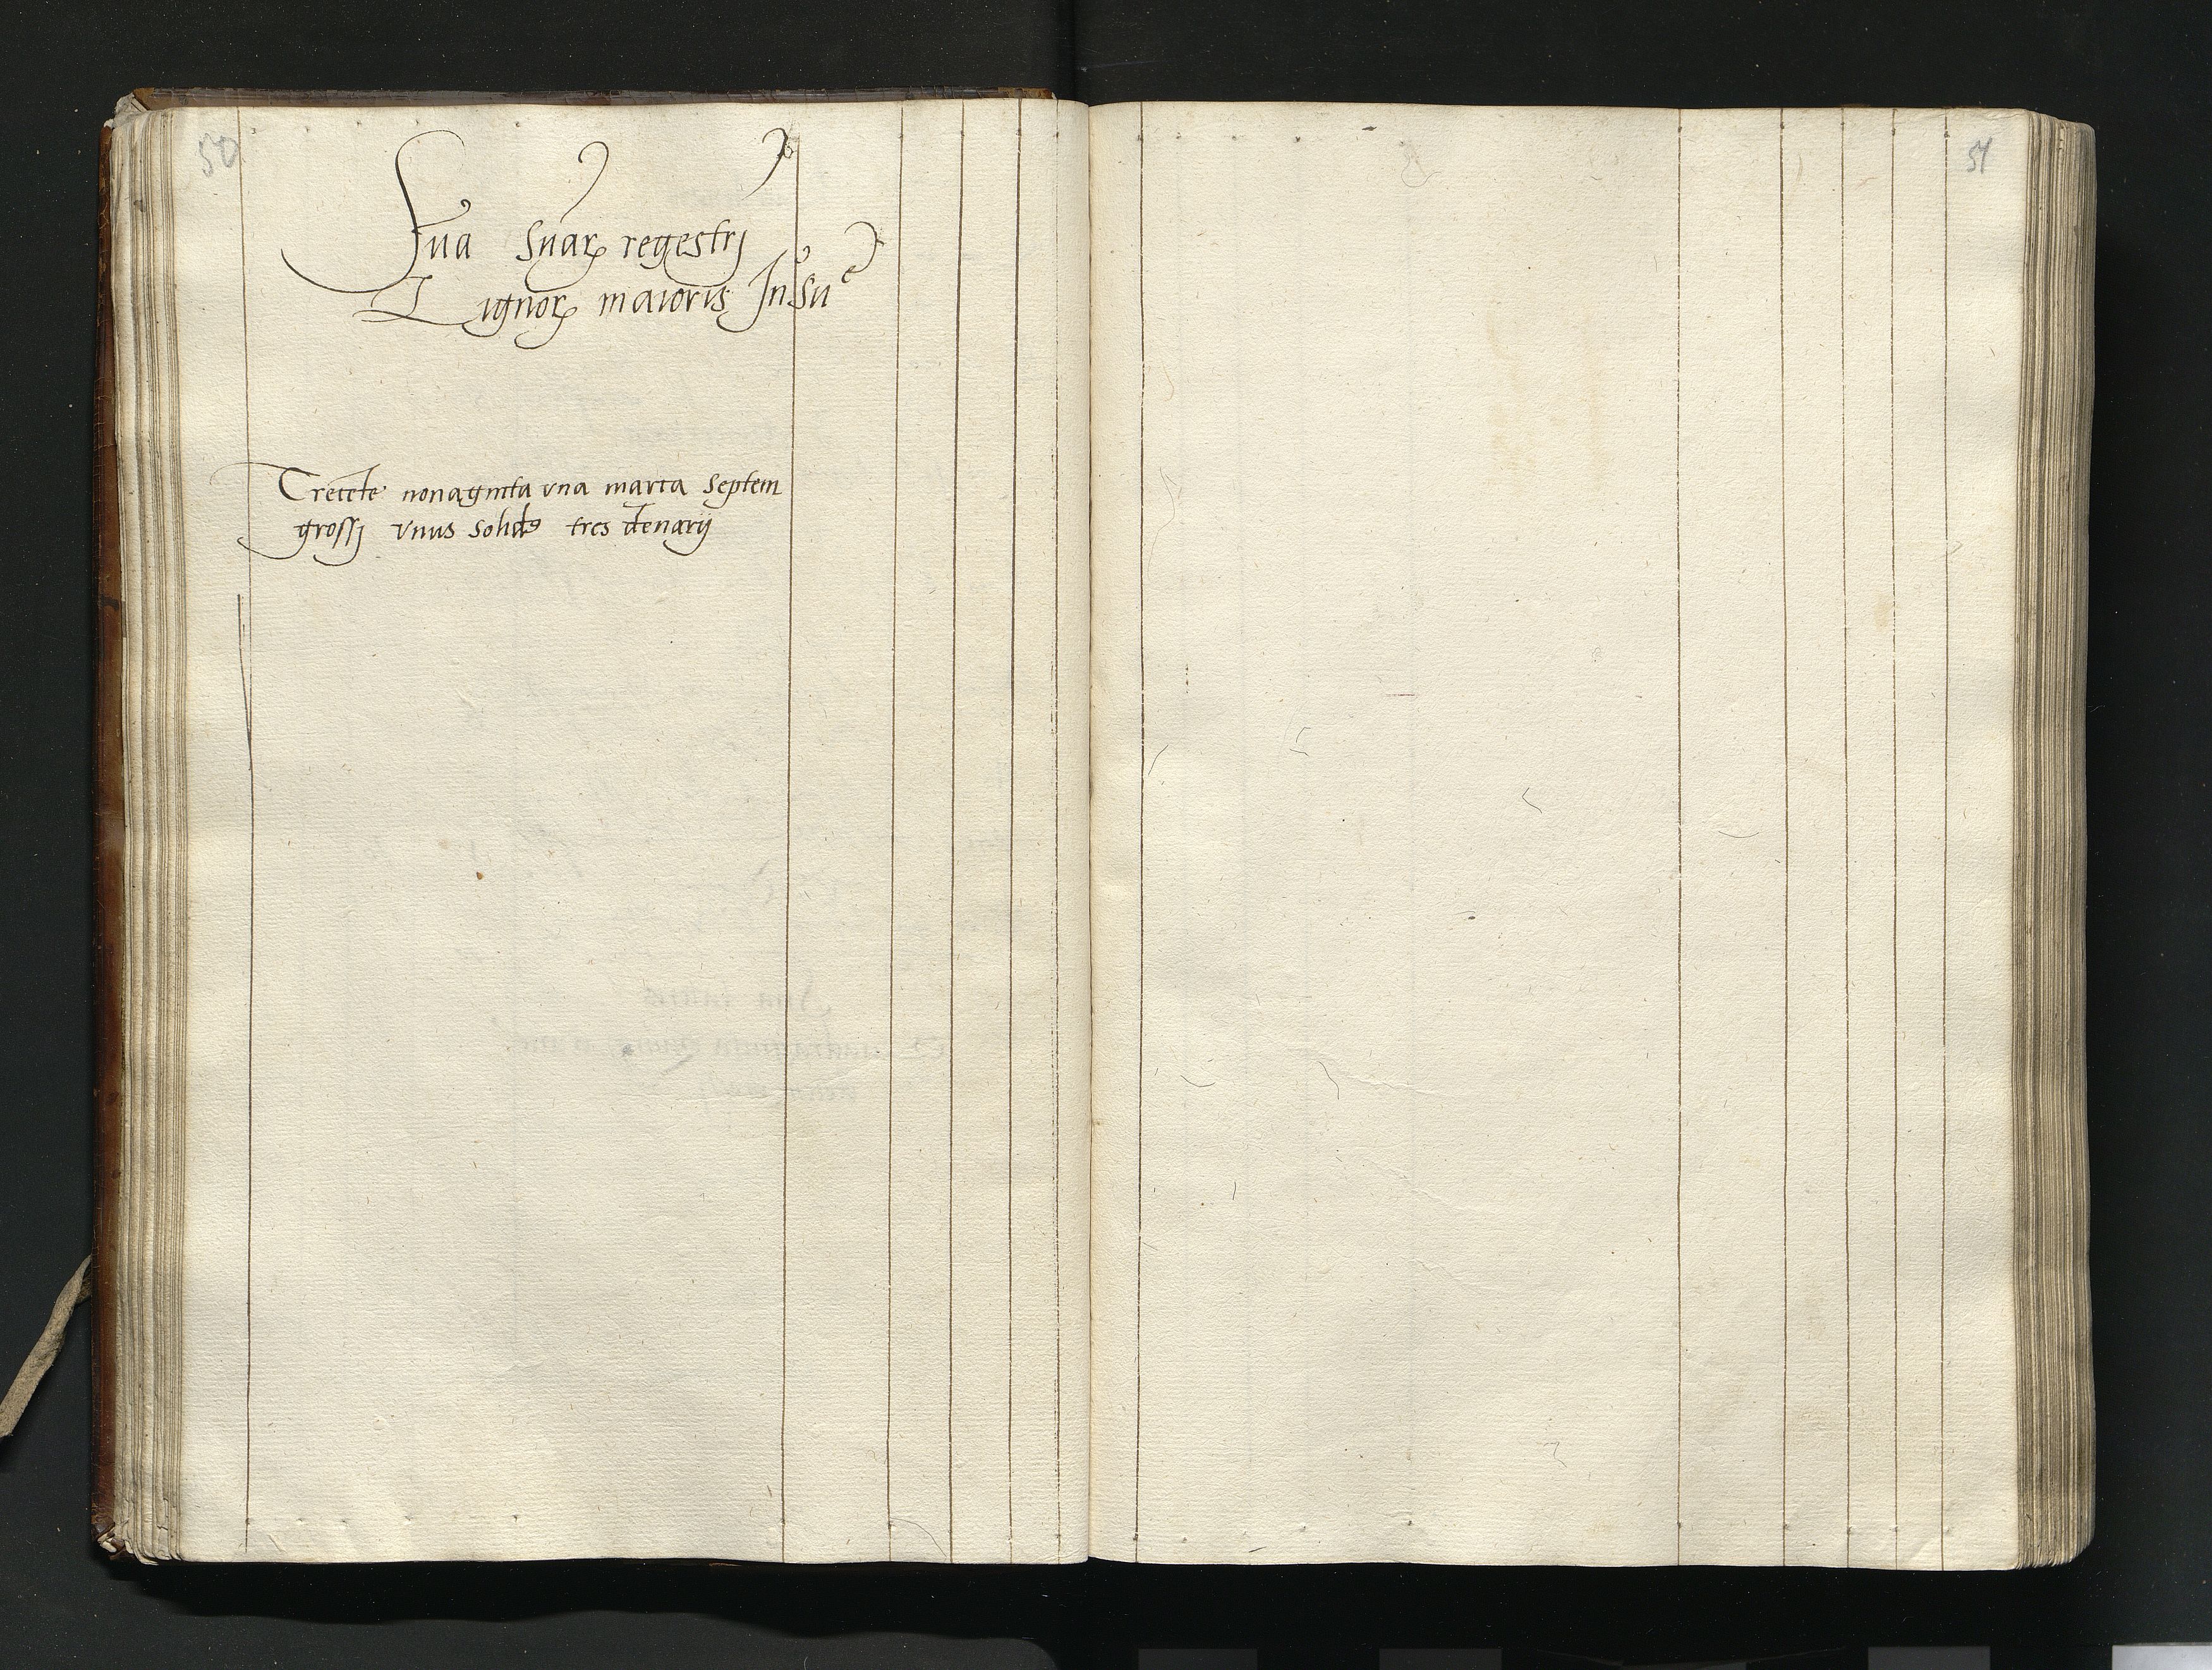 50
51
Sua suarꝝ regestrj
Lignorꝝ maioris Insuᵉ
Trecẽte nonaginta vna marca septem
grossj vnus solidꝰ tres denarij